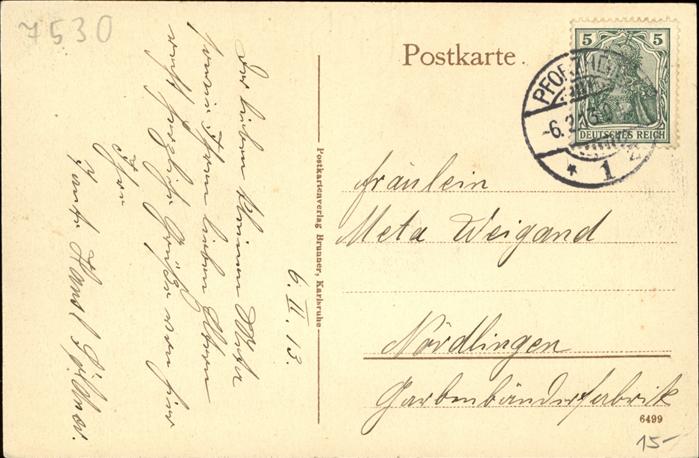 7530
Postkarte.
5 5
DEUTSCHES REICH
PFORZHEIM
-6.2.13.
* 1
6. II. 13.
Der lieben kleinen Meta
sowie Ihren lieben Eltern
recht herzliche Grüße von hier
Ihre
Hansl
Postkartenverlag Brunner, Karlsruhe
Fräulein
Meta Weigand
Nördlingen
Garbenbänderfabrik
6499
15-